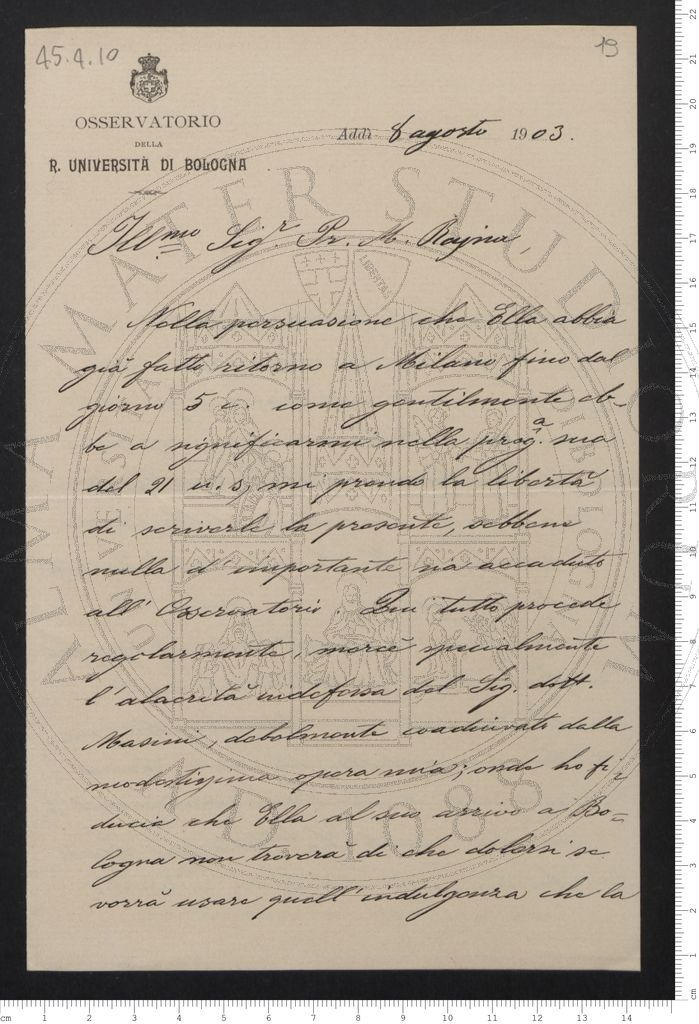 45.4.10
19
OSSERVATORIO
DELLA
R. UNIVERSITÀ DI BOLOGNA
Addì 8 agosto 1903.
Illmo Sigr Pr. M. Rajna,
Nella persuasione che Ella abbia
già fatto ritorno a Milano fino dal
giorno 5 c. come gentilmente eb-
be a significarmi nella prega. sua
del 21 u.s, mi prendo la libertà
di scriverle la presente, sebbene
nulla d'importante sia accaduto
all'Osservatorio. Qui tutto procede
regolarmente, mercè specialmente
l'alacrità indefessa del Sig. dott.
Masini, debolmente coadiuvato dalla
modestissima opera mia; onde ho fi-
ducia che Ella al suo arrivo a Bo=
logna non troverà di che dolersi se
vorrà usare quell'indulgenza che la
ALMA MATER STUDIORUM
A.D. 1088
LIBERTAS